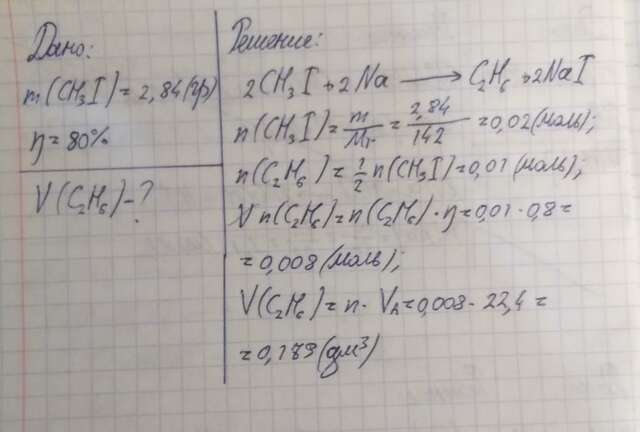 Дано:
m(CH₃I) = 2,84 (гр)
η = 80%
V(C₂H₆) - ?
Решение:
2CH₃I + 2Na ⟶ C₂H₆ + 2NaI
n(CH₃I) = m/Mr = 2,84/142 = 0,02 (моль);
n(C₂H₆) = 1/2 n(CH₃I) = 0,01 (моль);
n(C₂H₆) = n(C₂H₆) · η = 0,01 · 0,8 =
= 0,008 (моль);
V(C₂H₆) = n · VA = 0,008 · 22,4 =
= 0,179 (дм³)